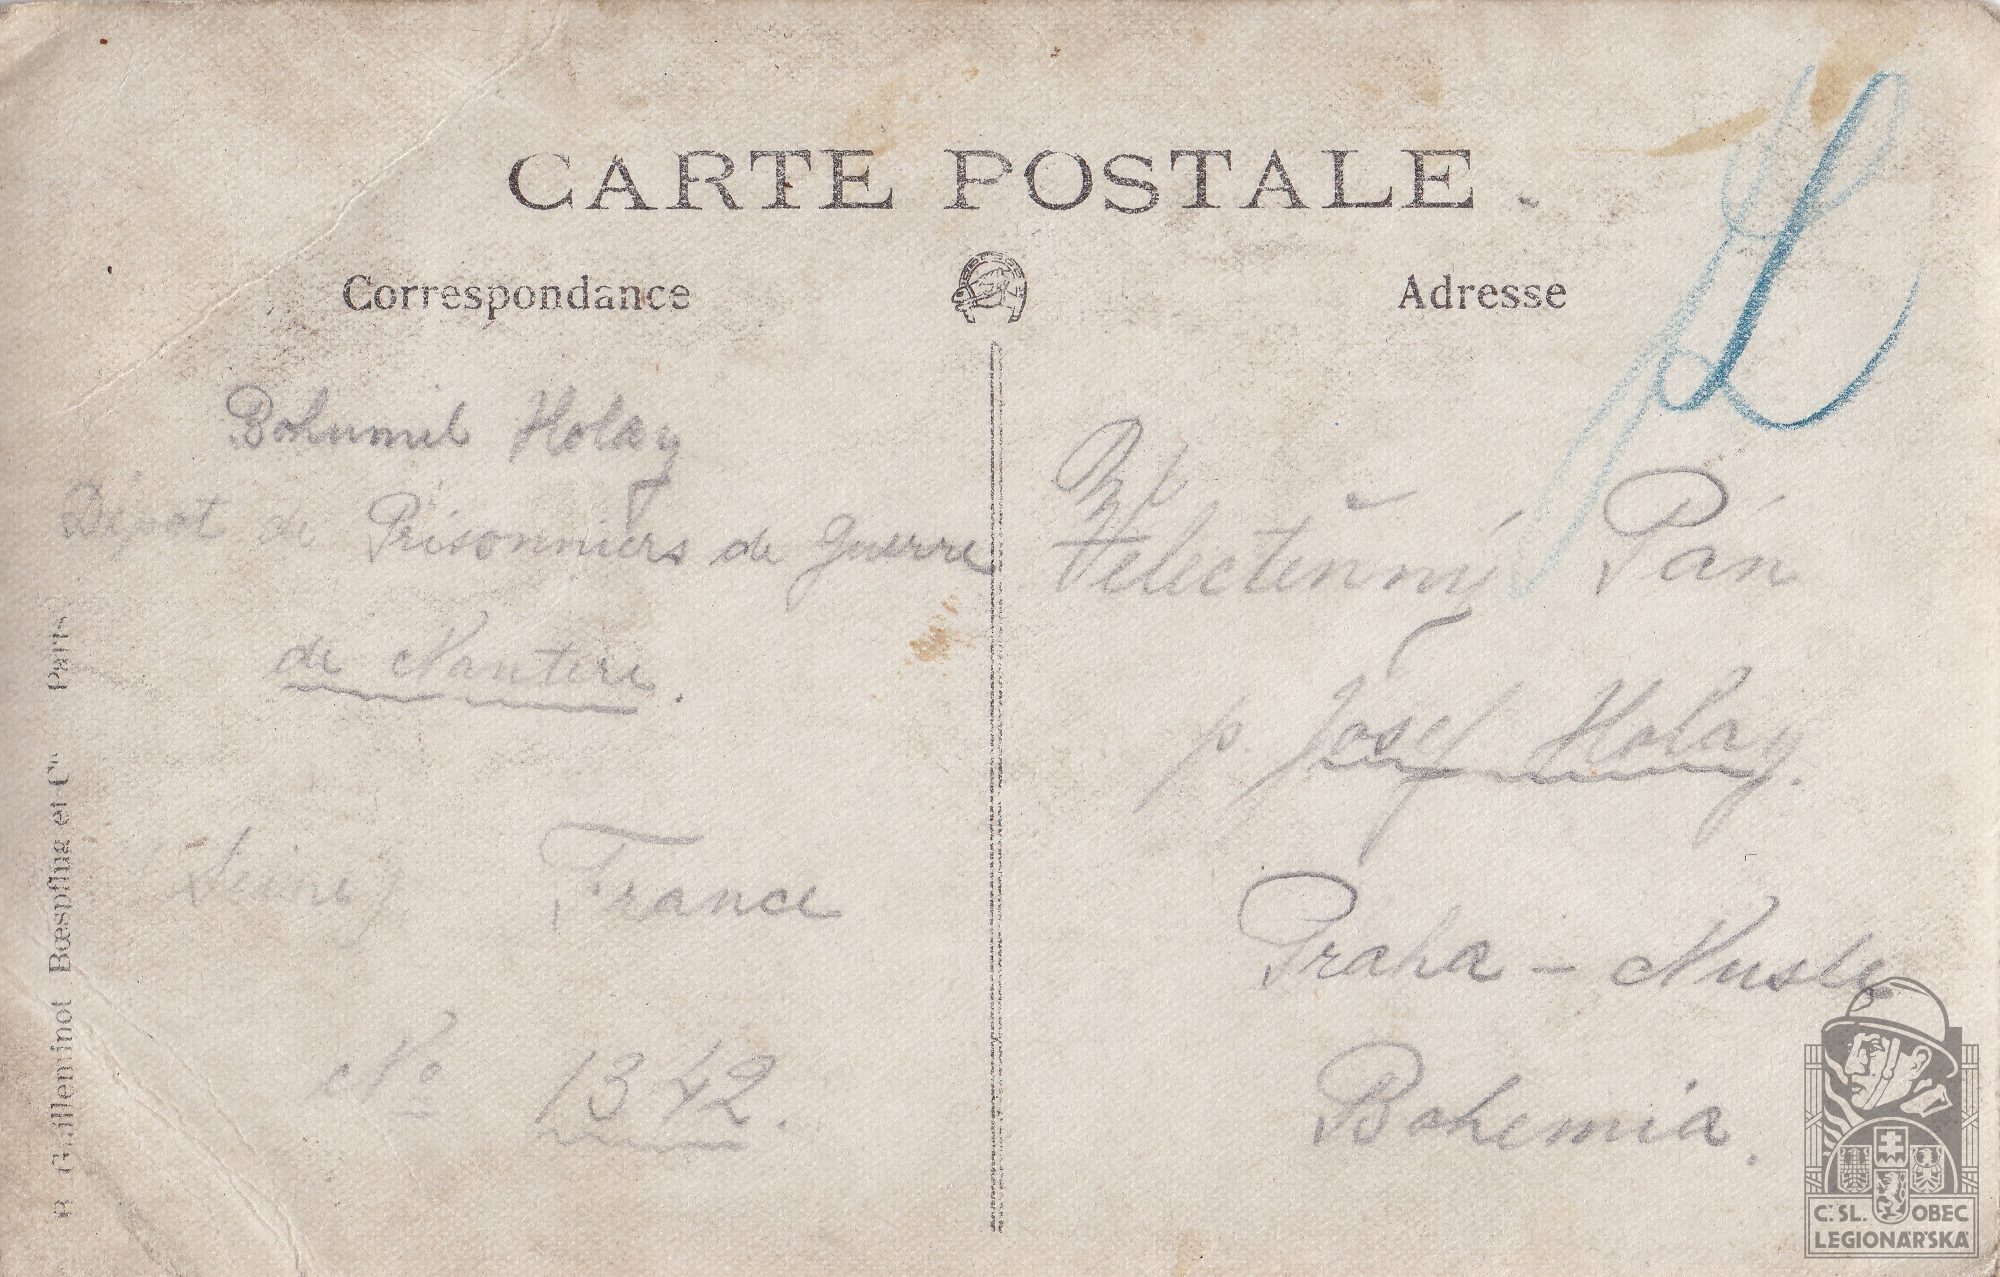 CARTE POSTALE
Correspondance
Adresse
Bohumil Holay
Dépot de Prisonniers de Guerre
de Nanterre.
Seine France
No 1342.
Velectěnný Pán
p. Josef Holay.
Praha - Nusle
Bohemia.
R. Guilleminot Bœspflug et Cie Paris
Č. SL. OBEC
LEGIONÁŘSKÁ